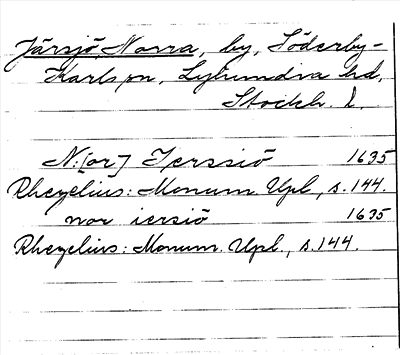 Järsjö, Norra, by, Söderby-
Karls sn, Lyhundra hd,
Stockh. l.
N:[or] Jerssiö 1635
Rhezelius: Monum. Upl., s. 144.
nor iersiö 1635
Rhezelius: Monum. Upl., s. 144.